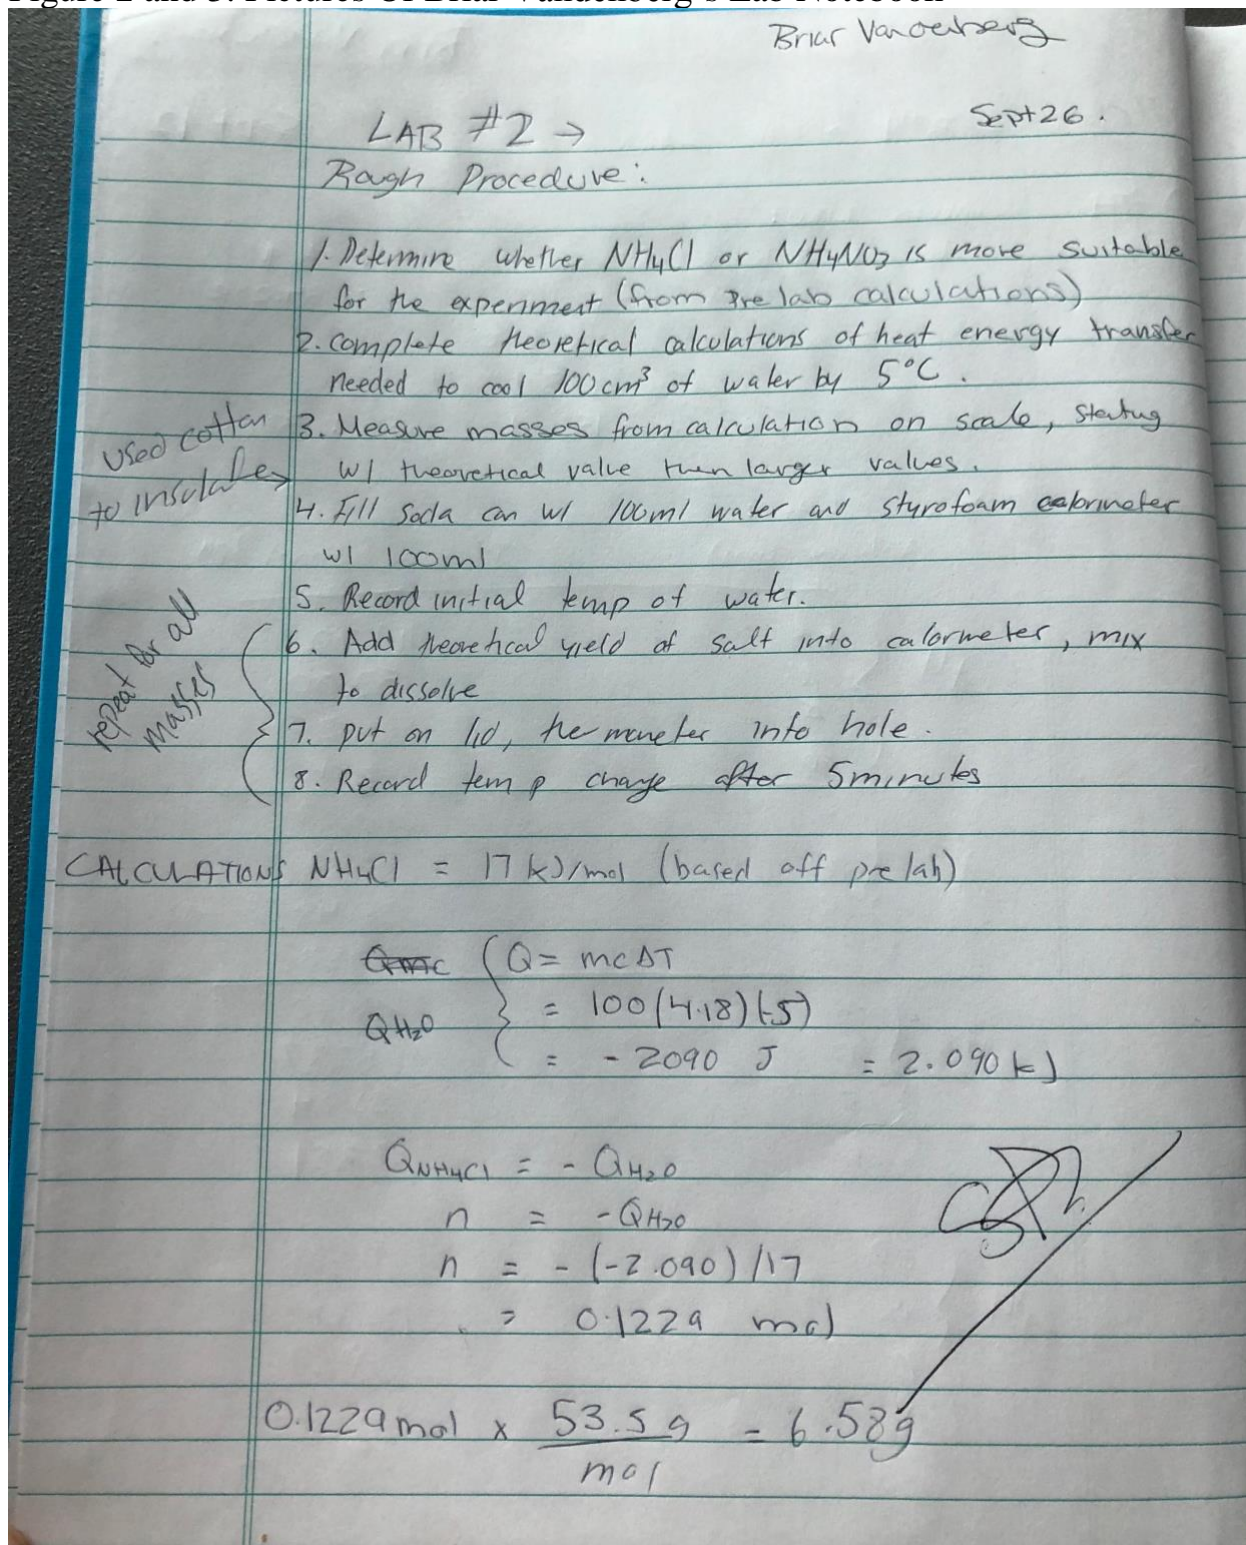 Briar Vandenberg
Sept 26.
LAB #2 →
Rough Procedure:
1. Determine whether NH4Cl or NH4NO3 is more suitable
for the experiment (from Pre lab calculations)
2. complete theoretical calculations of heat energy transfer
needed to cool 100cm³ of water by 5°C.
3. Measure masses from calculation on scale, starting
w/ theoretical value then larger values.
used cotton
to insulate →
4. Fill soda can w/ 100ml water and styrofoam calorimeter
w/ 100ml
5. Record initial temp of water.
repeat for all
masses
6. Add theoretical yield of salt into calormeter, mix
to dissolve
7. put on lid, thermometer into hole.
8. Record temp change after 5 minutes
CALCULATIONS NH4Cl = 17 kJ/mol (based off pre lab)
Qmc Q = mcΔT
QH2O = 100(4.18)(-5)
= -2090 J = 2.090 kJ
QNH4Cl = - QH2O
n = -QH2O
n = -(-2.090)/17
= 0.1229 mol
0.1229 mol x 53.5 g = 6.58g
mol